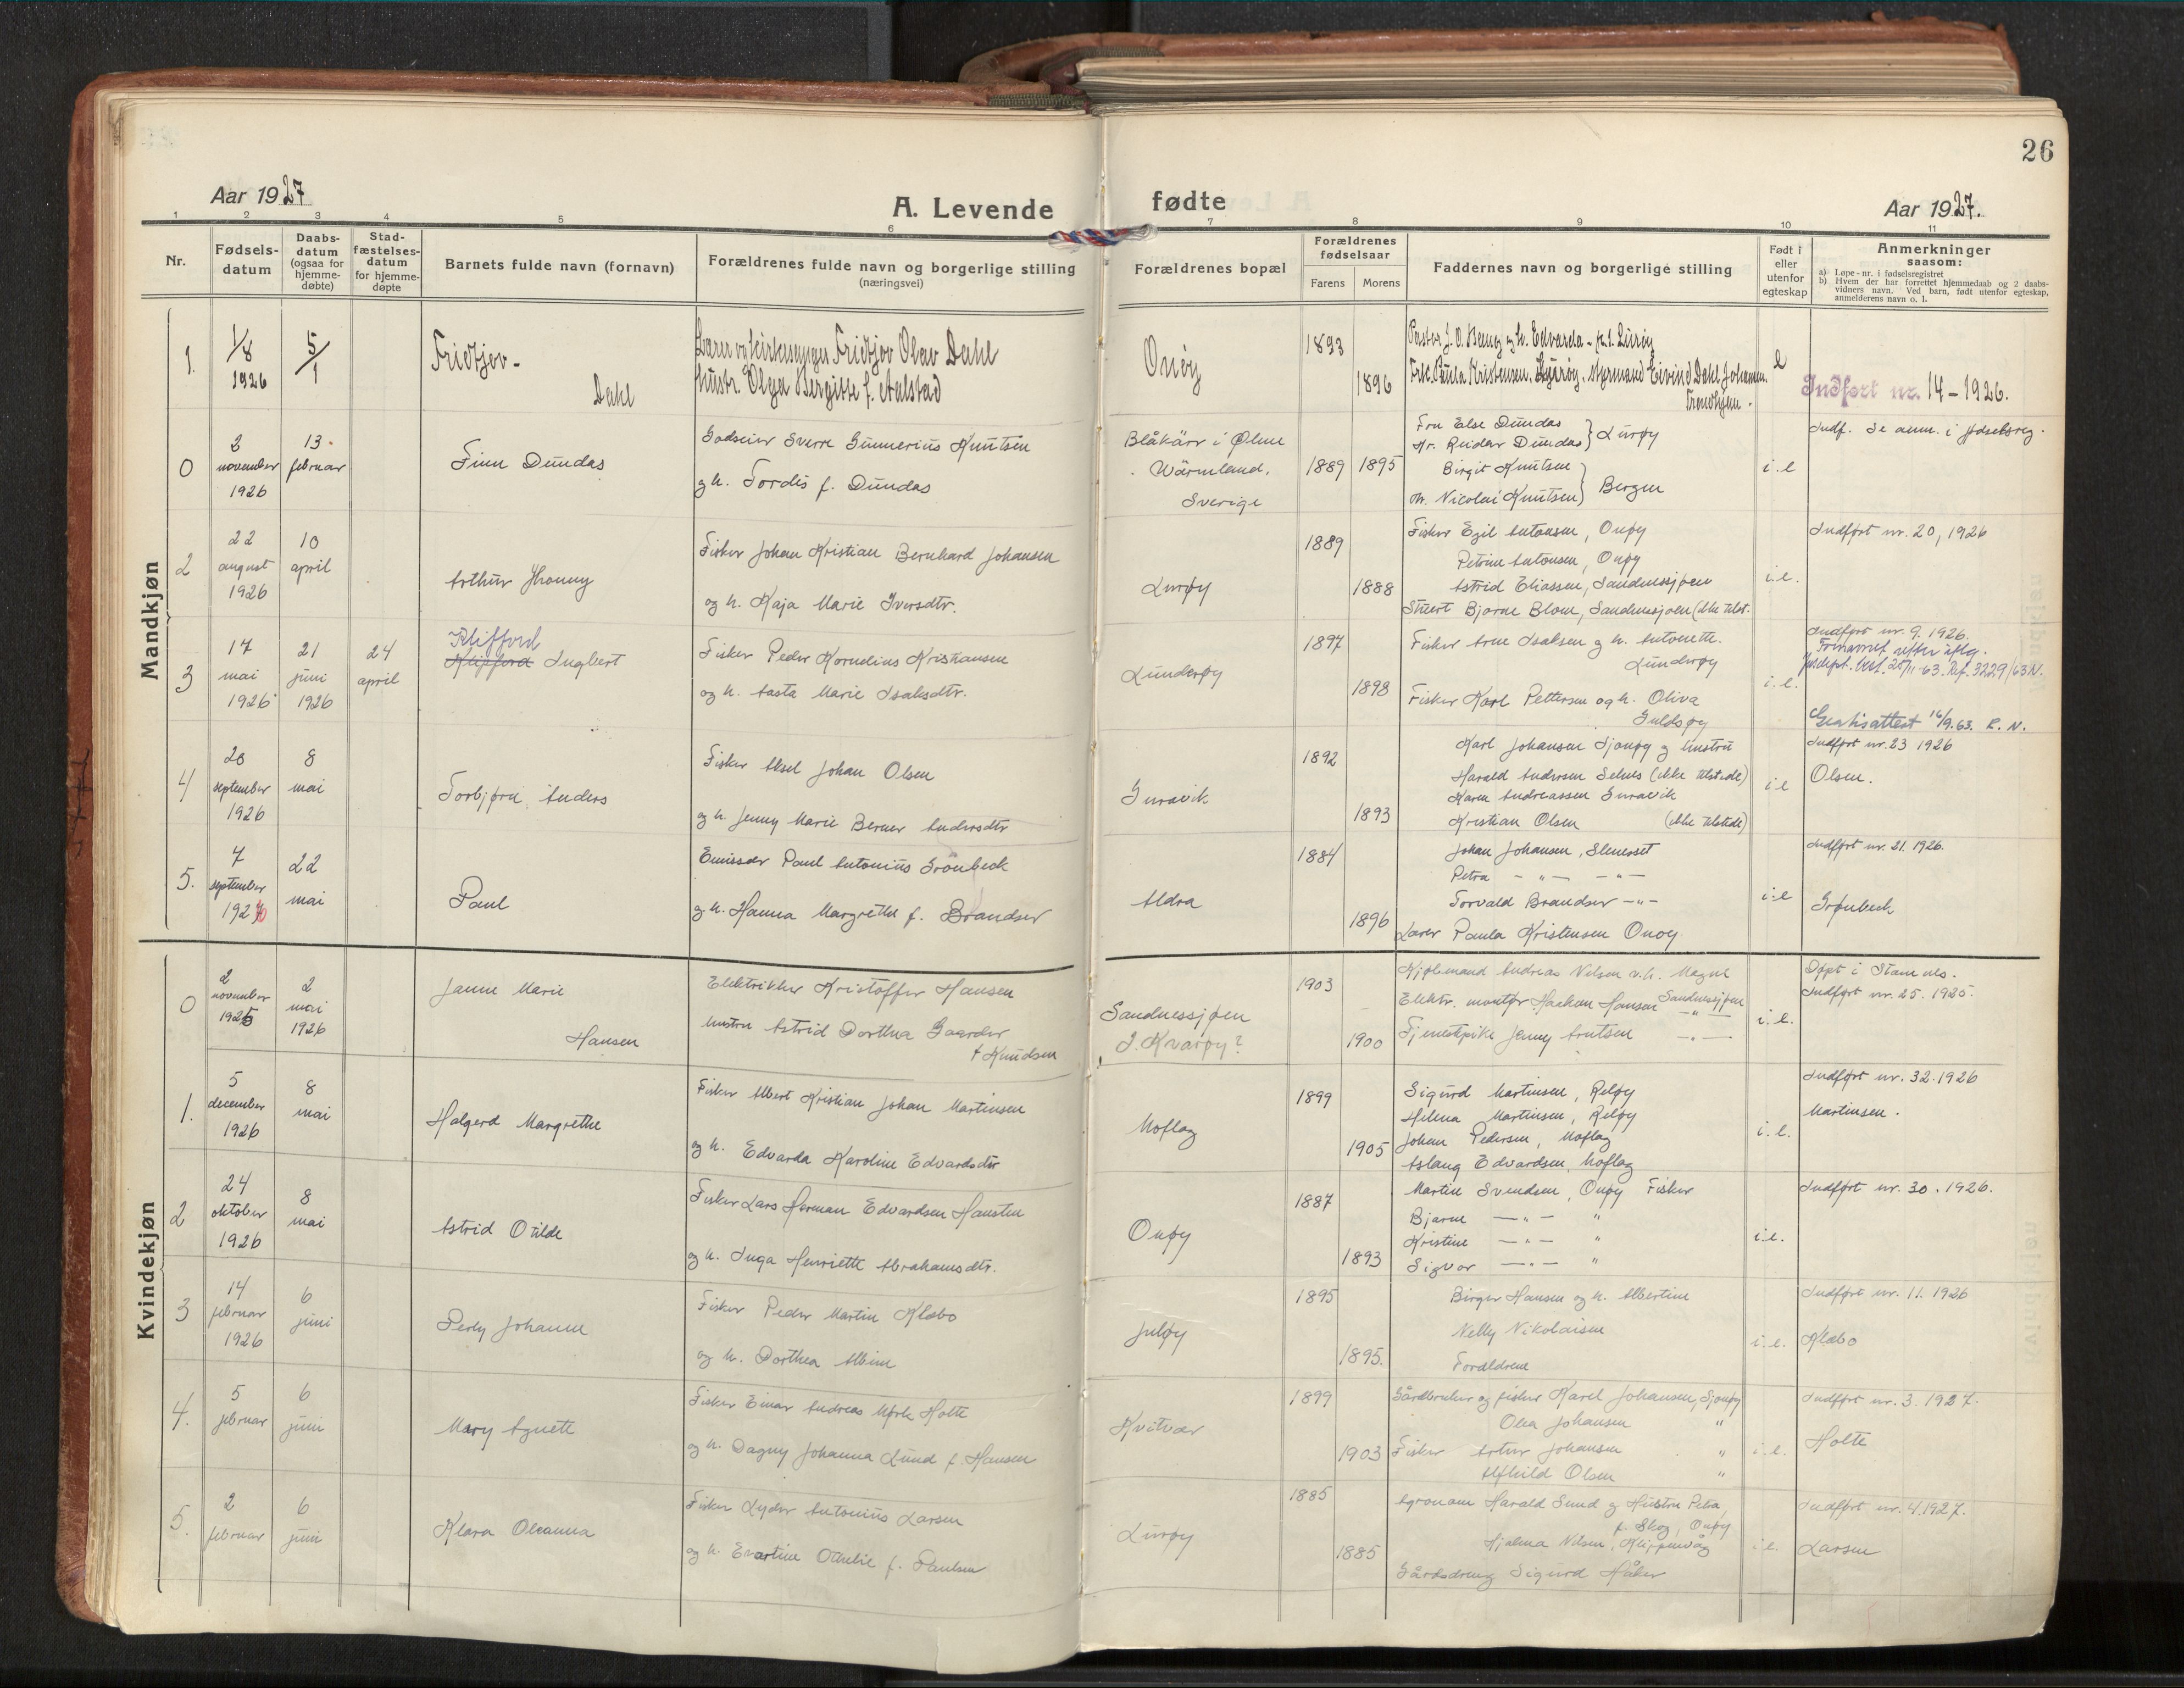 26
Aar 1927
A. Levende
fødte
Aar 1927.
1 2 3 4 5 6 7 8 9 10 11
Nr.
Fødsels-
datum
Daabs-
datum
(ogsaa for
hjemme-
døbte)
Stad-
fæstelses-
datum
for hjemme-
døpte
Barnets fulde navn (fornavn)
Forældrenes fulde navn og borgerlige stilling
(næringsvei)
Forældrenes bopæl
Forældrenes
fødselsaar
Farens
Morens
Faddernes navn og borgerlige stilling
Født i
eller
utenfor
egteskap
Anmerkninger
saasom:
a) Løpe-nr. i fødselsregistret
b) Hvem der har forrettet hjemmedaab og 2 daabs-
vidners navn. Ved barn, født utenfor egteskap,
anmelderens navn o. l.
Mandkjøn
1.
1/8
1926
5/1
Fridtjov -
Dahl
Lærer og kirkesanger Fridtjov Olav Dahl
hustr. Olga Bergitte f. Aalstad
Onøy
1893
1896
Pastor J. O. Berney og h. Edvarda - p.t. Lurøy
Frk. Paula Kristensen, Styrmand Eivind Dahl Johannsen.
Trondhjem.
Indført nr. 14 - 1926.
0
2
november
1926
13
februar
Finn Dundas
Godseier Sverre Gunnerius Knutsen
og h. Tordis f. Dundas
Blåkärr i Ølme
Wärmland,
Sverige
1889
1895
Fru Else Dundas
Hr. Reidar Dundas } Lurøy
Birgit Knutsen
Nicolai Knutsen } Bergen
i.e
Indf. Se anm. i fødselsreg.
2
22
august
1926
10
april
Arthur Jhonny
Fisker Johan Kristian Bernhard Johansen
og h. Kaja Marie Iversdtr.
Lurøy
1889
1888
Fisker Egil Antonsen, Onøy
Petrine Antonsen, Onøy
Astrid Eliassen, Sandnessjøen
Stuert Bjarne Blom, Sandnessjøen (ikke tilst.
i.e.
Indført nr. 20, 1926
3
17
mai
1926
21
juni
1926
24
april
Klifford
Klifford Ingbert
Fisker Peder Kornelius Kristiansen
og h. Aasta Marie Isaksdtr.
Lunderøy
1897
1898
Fisker Arne Isaksen og h. Antonette.
Lunderøy
Fisker Karl Pettersen og h. Oliva
Guldsøy
i.e.
Indført nr. 9. 1926.
Fornavnet rettet iflg.
Gratisattest 16/9.63. R. N.
4
20
september
1926
8
mai
Torbjørn Anders
Fisker Aksel Johan Olsen
og h. Jenny Marie Berner Andersdtr
Suravik
1892
1893
Karl Johansen Sjonøy og hustru
Harald Andersen Selnes (ikke tilstede)
Karen Andreassen Suravik
Kristian Olsen (ikke tilstede)
i.e
Indført nr. 23 1926
Olsen.
5.
7
september
1926
22
mai
Paul
Emissær Paul Antonius Grønbeck
og h. Hanna Margrethe f. Brandser
Aldra
1884
1896
Johan Johansen, Stenesset
Petra - " - - " -
Torvald Brandser - " -
Lærer Paula Kristensen Onøy
i.e
Indført nr. 21. 1926.
Grønbeck
Kvindekjøn
0
2
november
1925
2
mai
1926
Janne Marie
Hansen
Elektriker Kristoffer Hansen
hustru Astrid Dorthea Gaarder
f Knudsen
Sandnessjøen
I. Kvarøy?
1903
1900
Kjøbmand Andreas Nilsen og h. Magne
Elektr. montør Haakon Hansen Sandnessjøen
Tjenestpike Jenny Arntsen - " -
i.e.
Døpt i Stamnes.
Indført nr. 25. 1925.
1.
5
december
1926
8
mai
Halgerd Margrethe
Fisker Albert Kristian Johan Martinsen
og h. Edvarda Karoline Edvardsdtr
Moflag
1899
1905
Sigurd Martinsen, Reløy
Helena Martinsen, Reløy
Johan Pedersen, Moflag
Aslaug Edvardsen, Moflag
i.e.
Indført nr. 32. 1926
Martinsen.
2
24
oktober
1926
8
mai
Astrid Otilde
Fisker Lars Herman Edvardsen Hansten
og h. Inga Henriette Abrahamsdtr.
Onøy
1887
1893
Martin Svendsen, Onøy Fisker
Bjarne - " - "
Kristine - " - "
Sigvor - " - "
i.e.
Indført nr. 30. 1926.
3
14
februar
1926
6
juni
Perly Johanne
Fisker Peder Martin Klæbo
og h. Dorthea Albine
Juløy
1895
1895.
Birger Hansen og h. Albertine
Nelly Nikolaisen
Foreldrene
i.e.
Indført nr. 11. 1926
Klæbo
4.
5
februar
6
juni
Mary Agnete
Fisker Einar Andreas Mørk Holte
og h. Dagny Johanna Lund f. Hansen
Kvitvær
1899
1903
Gårdbruker og fisker Karel Johansen, Sjonøy
Olea Johansen "
Fisker Artur Johansen "
Alfhild Olsen "
i.e.
Indført nr. 3. 1927.
Holte
5.
2
februar
6
juni
Klara Oleanna
Fisker Lyder Antonius Larsen
og h. Evartine Othelie f. Paulsen
Lurøy
1885
1885
Agronom Harald Sund og Hustru Petra,
f. Skog, Onøy
Hjalma Nilsen, Klippenvåg
Gårdsdreng Sigurd Håker
i.e.
Indført nr. 4. 1927.
Larsen